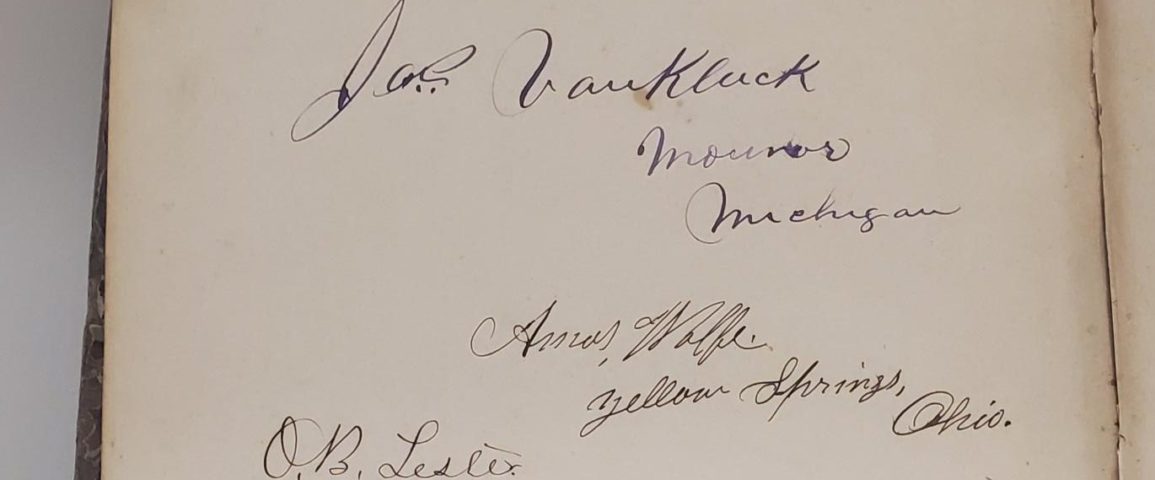 Jas. VanKluck
Michigan
Amos, Wolfe.
Yellow Springs,
Ohio.
O. B. Lester